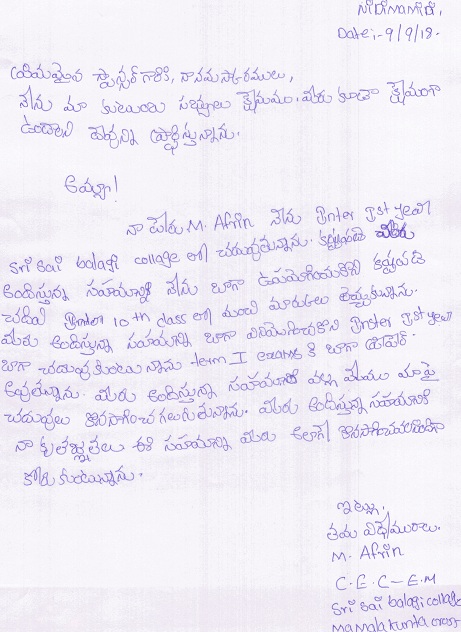 NIDIMAMIDI,
Date:- 9/9/18.
ప్రియమైన స్పాన్సర్ గారికి, నా నమస్కారములు,
నేను మా కుటుంబ సభ్యులు క్షేమము. మీరు కూడా క్షేమంగా
ఉండాలని దేవున్ని ప్రార్థిస్తున్నాను.
అమ్మా!
నా పేరు M. Afrin నేను Inter Ist year
Sri Sai balagi collage లో చదువుతున్నాను. కష్టపడి మీరు
అందిస్తున్న సహాయాన్ని నేను బాగా ఉపయోగించుకొని కష్టపడి
చదివి 10th class లో మంచి మార్కులు తెచ్చుకున్నాను.
మీరు అందిస్తున్న సహాయాన్ని బాగా వినియోగించుకొని Inter Ist year
బాగా చదువుకుంటున్నాను term I exams కి బాగా ప్రిపేర్
అవుతున్నాను. మీరు అందిస్తున్న సహాయానికి వల్ల మేము మా పై
చదువులు కొనసాగించగలుగుతున్నాను. మీరు అందిస్తున్న సహాయానికి
నా కృతజ్ఞతలు ఈ సహాయాన్ని మీరు ఇలాగే కొనసాగించవలసిందిగా
కోరుకుంటున్నాను.
ఇట్లు,
తమ విధేయురాలు.
M. Afrin
C.E.C-E.M
Sri Sai balagi collage
Mamala kunta cross